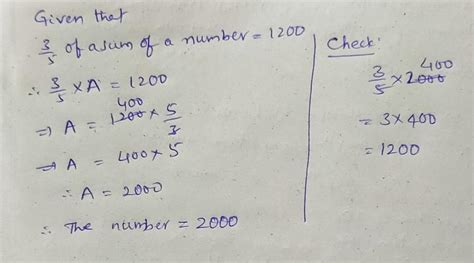 Given that
3/5 of a sum of a number = 1200
∴ 3/5 × A = 1200
⇒ A = 1200 400 × 5/3
⇒ A = 400 × 5
∴ A = 2000
∴ The number = 2000
Check:
3/5 × 2000 400
= 3 × 400
= 1200